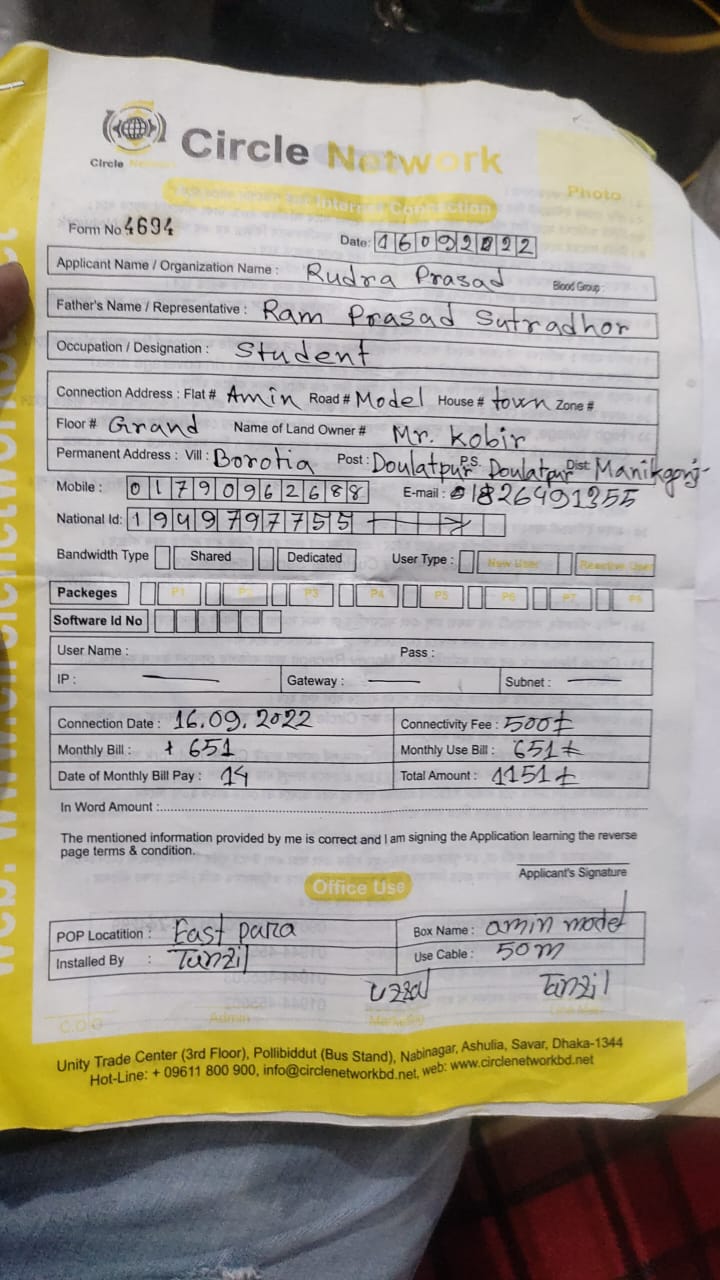 Circle Network
Circle Network
Internet Connection
Photo
Form No 4694
Date: 16092022
Applicant Name / Organization Name : Rudra Prasad Blood Group :
Father's Name / Representative : Ram Prasad Sutradhor
Occupation / Designation : Student
Connection Address : Flat # Amin Road # Model House # town Zone #
Floor # Grand Name of Land Owner # Mr. Kobir
Permanent Address : Vill : Borotia Post : Doulatpur P.S. Doulatpur Dist: Manikgonj
Mobile : 01790962688 E-mail : 01826491355
National Id: 1949797755
Bandwidth Type Shared Dedicated User Type : New User Reactive User
Packeges P1 P2 P3 P4 P5 P6 P7 P8
Software Id No
User Name : Pass :
IP : Gateway : Subnet :
Connection Date : 16.09.2022 Connectivity Fee : 500
Monthly Bill : 651 Monthly Use Bill : 651
Date of Monthly Bill Pay : 14 Total Amount : 1151
In Word Amount :
The mentioned information provided by me is correct and I am signing the Application learning the reverse
page terms & condition.
Applicant's Signature
Office Use
POP Locatition : East para Box Name : amin model
Installed By : Tanzil Use Cable : 50m
Tanzil
C.O.O Admin
Unity Trade Center (3rd Floor), Pollibiddut (Bus Stand), Nabinagar, Ashulia, Savar, Dhaka-1344
Hot-Line: + 09611 800 900, info@circlenetworkbd.net, web: www.circlenetworkbd.net